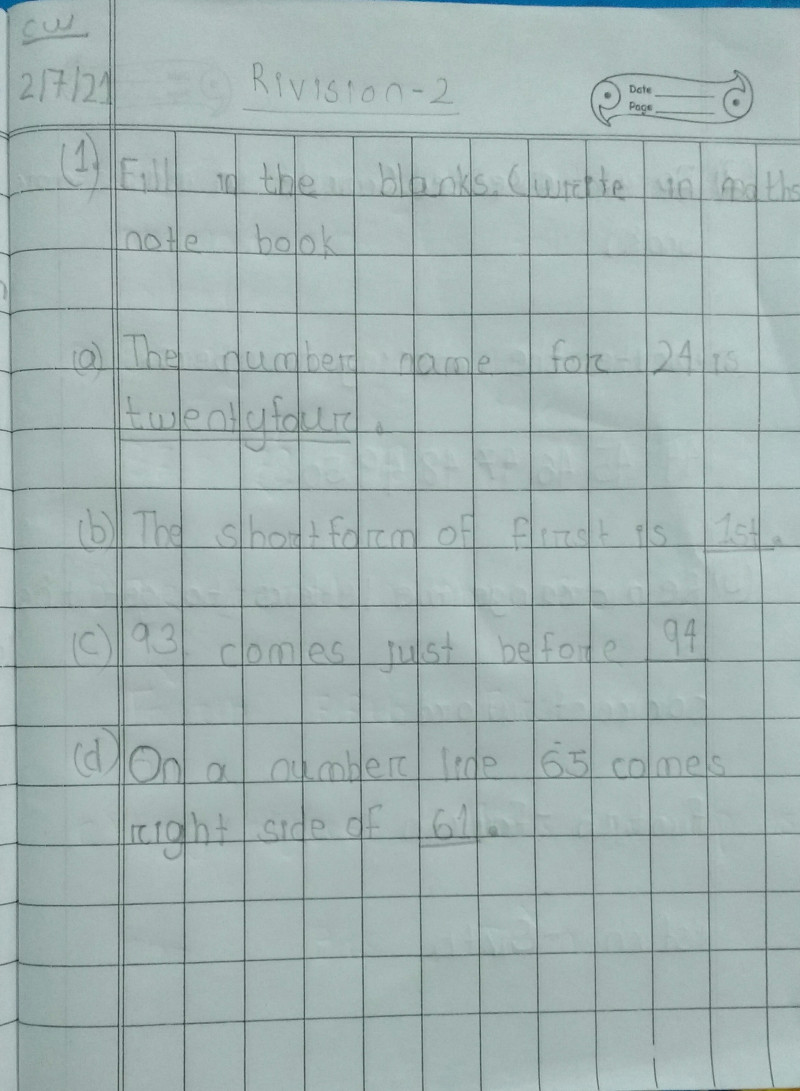 CW
2/7/21
Rivision-2
Date
Page
(1) Fill in the blanks. (write in maths
note book
(a) The number name for 24 is
twentyfour.
(b) The short form of first is 1st.
(c) 93 comes just before 94
(d) On a number line 65 comes
right side of 61.